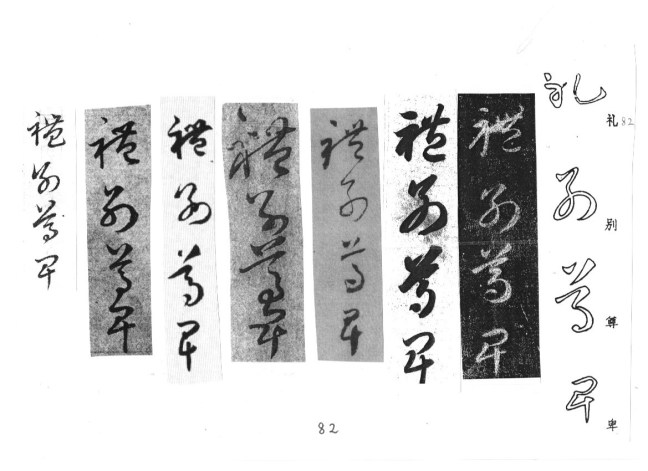 礼別尊卑
礼別尊卑
82
禮別尊卑
禮別尊卑
禮別尊卑
禮別尊卑
禮別尊卑
禮別尊卑
禮別尊卑
82